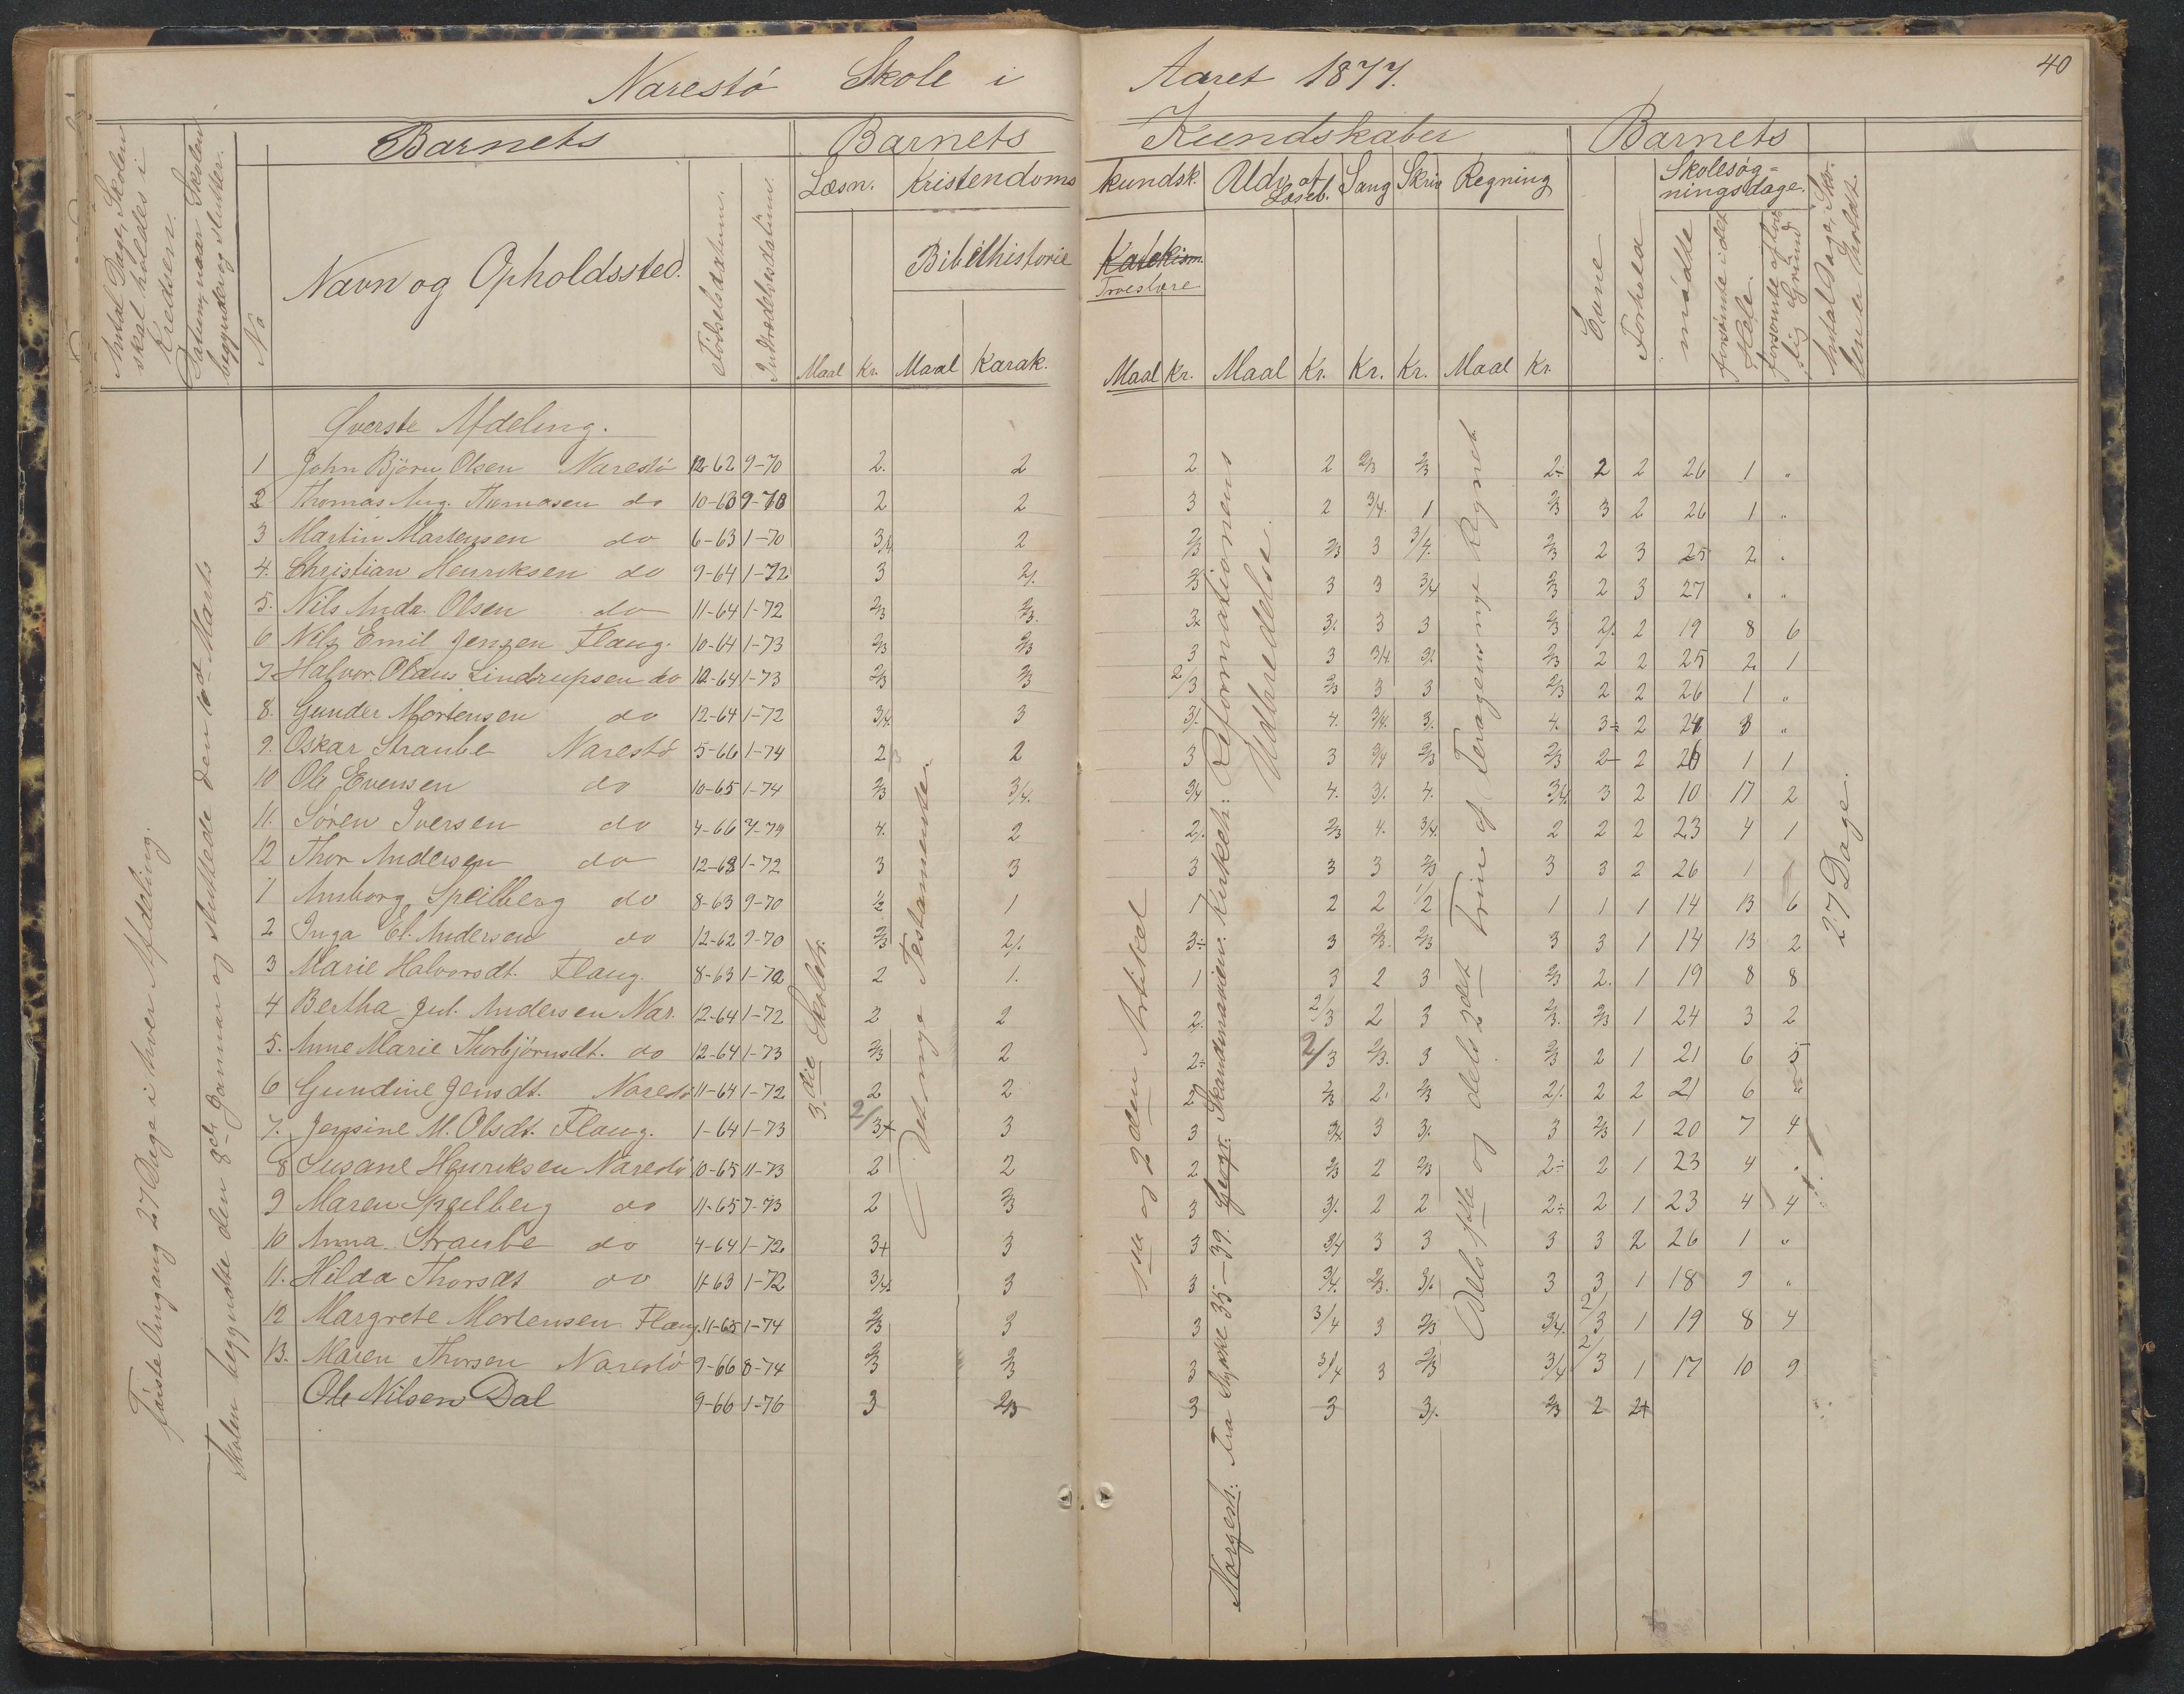 Narestö Skole i Aaret 1877.
40
Antal Dage, Skolen skal holdes i Kredsen.
Datum, naar Skolen begynder og slutter.
No
Barnets
Navn og Opholdssted.
Fødselsdatum.
Indtrædelsesdatum.
Barnets Kundskaber
Læsn. Kristendoms kundsk. Udv. af Læseb. Sang Skriv Regning
Bibelhistorie Katekism. Troeslære
Maal Kr. Maal Karak. Maal Kr. Maal Kr. Kr. Kr. Maal Kr.
Barnets
Evne
Forhold
Skolesøgningsdage.
mødte
forsømte i det Hele.
forsömte af lovlig Grund
Antal Dage, Skolen er holdt.
Øverste Afdeling.
1 John Björn Olsen Narestö 12-62 9-70 2. 2 2 2 2/3 2/3 2÷ 2 2 26 1 "
2 Thomas Aug. Thomasen do 10-63 9-70 2 2 3 2 3/4. 1 2/3 3 2 26 1 "
3 Martin Martensen do 6-63 1-70 3/4 2 2/3 2/3 3 3/4. 2/3 2 3 25 2 "
4. Christian Henriksen do 9-64 1-72 3 2/. 2/3 3 3 3/4 2/3 2 3 27 " "
5. Nils Andr. Olsen do 11-64 1-72 2/3 2/3. 3 3/. 3 3 2/3 2/. 2 19 8 6
6 Nils Emil Jensen Flaug. 10-64 1-73 2/3 2/3 3 3 3/4 3/. 2/3 2 2 25 2 1
7. Halvor Olaus Lindrupsen do 12-64 1-73 2/3 2/3 2/3 2/3 3 3 2/3 2 2 26 1 "
8. Gunder Mortensen do 12-64 1-72 3/4. 3 3/. 4. 3/4. 3. 4. 3÷ 2 24 3 "
9. Oskar Straube Narestö 5-66 1-74 2 2 3 3 3/4 2/3 2/3 2- 2 26 1 1
10 Ole Evensen do 10-65 1-74 2/3 3/4. 3/4 4. 3/. 4. 3/4. 3 2 10 17 2
11. Sören Iversen do 4-66 7-74 4. 2 2/. 2/3 4. 3/4. 2 2 2 23 4 1
12 Thor Andersen do 12-63 1-72 3 3 3 3 3 2/3 3 3 2 26 1 1
1 Amborg Speilberg do 8-63 9-70 1/2 1 1 2 2 1/2 1 1 1 14 13 6
2 Inga El. Andersen do 12-62 9-70 2/3 2/. 3÷ 3 2/3. 2/3 3 3 1 14 13 2
3 Marie Halvorsdt. Flaug. 8-63 1-72 2 1. 1 3 2 3 2/3 2. 1 19 8 8
4 Bertha Jul. Andersen Nar. 12-64 1-72 2 2 2/. 2/3 2 3 2/3. 2/3 1 24 3 2
5. Anne Marie Thorbjörnsdt. do 12-64 1-73 2/3 2 2÷ 2/3 2/3. 3 2/3 2 1 21 6 5
6 Gundine Jensdt. Narestö 11-64 1-72 2 2 2 2/3 2. 2/3 2/. 2 2 21 6 "
7. Jensine M. Olsdt. Flaug. 1-64 1-73 2/3+ 3 3 3/4 3 3/. 3 2/3 1 20 7 4
8 Susane Henriksen Narestö 10-65 11-73 2 2 2 2/3 2 2/3 2÷ 2 1 23 4 "
9 Maren Speilberg do 11-65 7-73 2 2/3 3 3/. 2 2 2÷ 2 1 23 4 4
10 Anna Straube do 4-64 1-72 3+ 3 3 3/4 3 3 3 3 2 26 1 "
11. Hilda Thorsdt do 11-63 1-72 3/4. 3 3 3/4. 2/3. 3/. 3 3 1 18 9 "
12 Margrete Mortensen Flaug. 11-65 1-74 2/3 3 3 3/4 3 2/3 3/4. 2/3 1 19 8 4
13. Maren Thorsen Narestö 9-66 8-74 2/3 2/3 3 3/4 3 2/3 3/4 2/3 1 17 10 9
Ole Nilsen Dal 9-66 1-76 3 2/3 3 3 3/. 2/3 2 2+
Förste Omgang 27 Dage i hver Afdeling.
Skolen begyndte den 8de Januar og sluttede den 10de Marts
3.die Skoletr.
Det nye Testamente
1ste og 2den Artikel
Norgesh: Fra Stykke 35-39. Geogr: Skandinavien. Kirkeh: Reformationens Udbredelse.
Dels 1ste og dels 2det Trin af Teragens nye Regneb.
27 Dage.